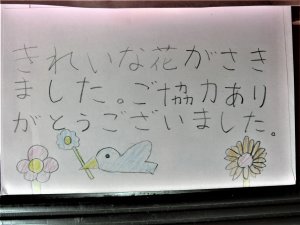 きれいな花がさき
ました。ご協力あり
がとうございました。